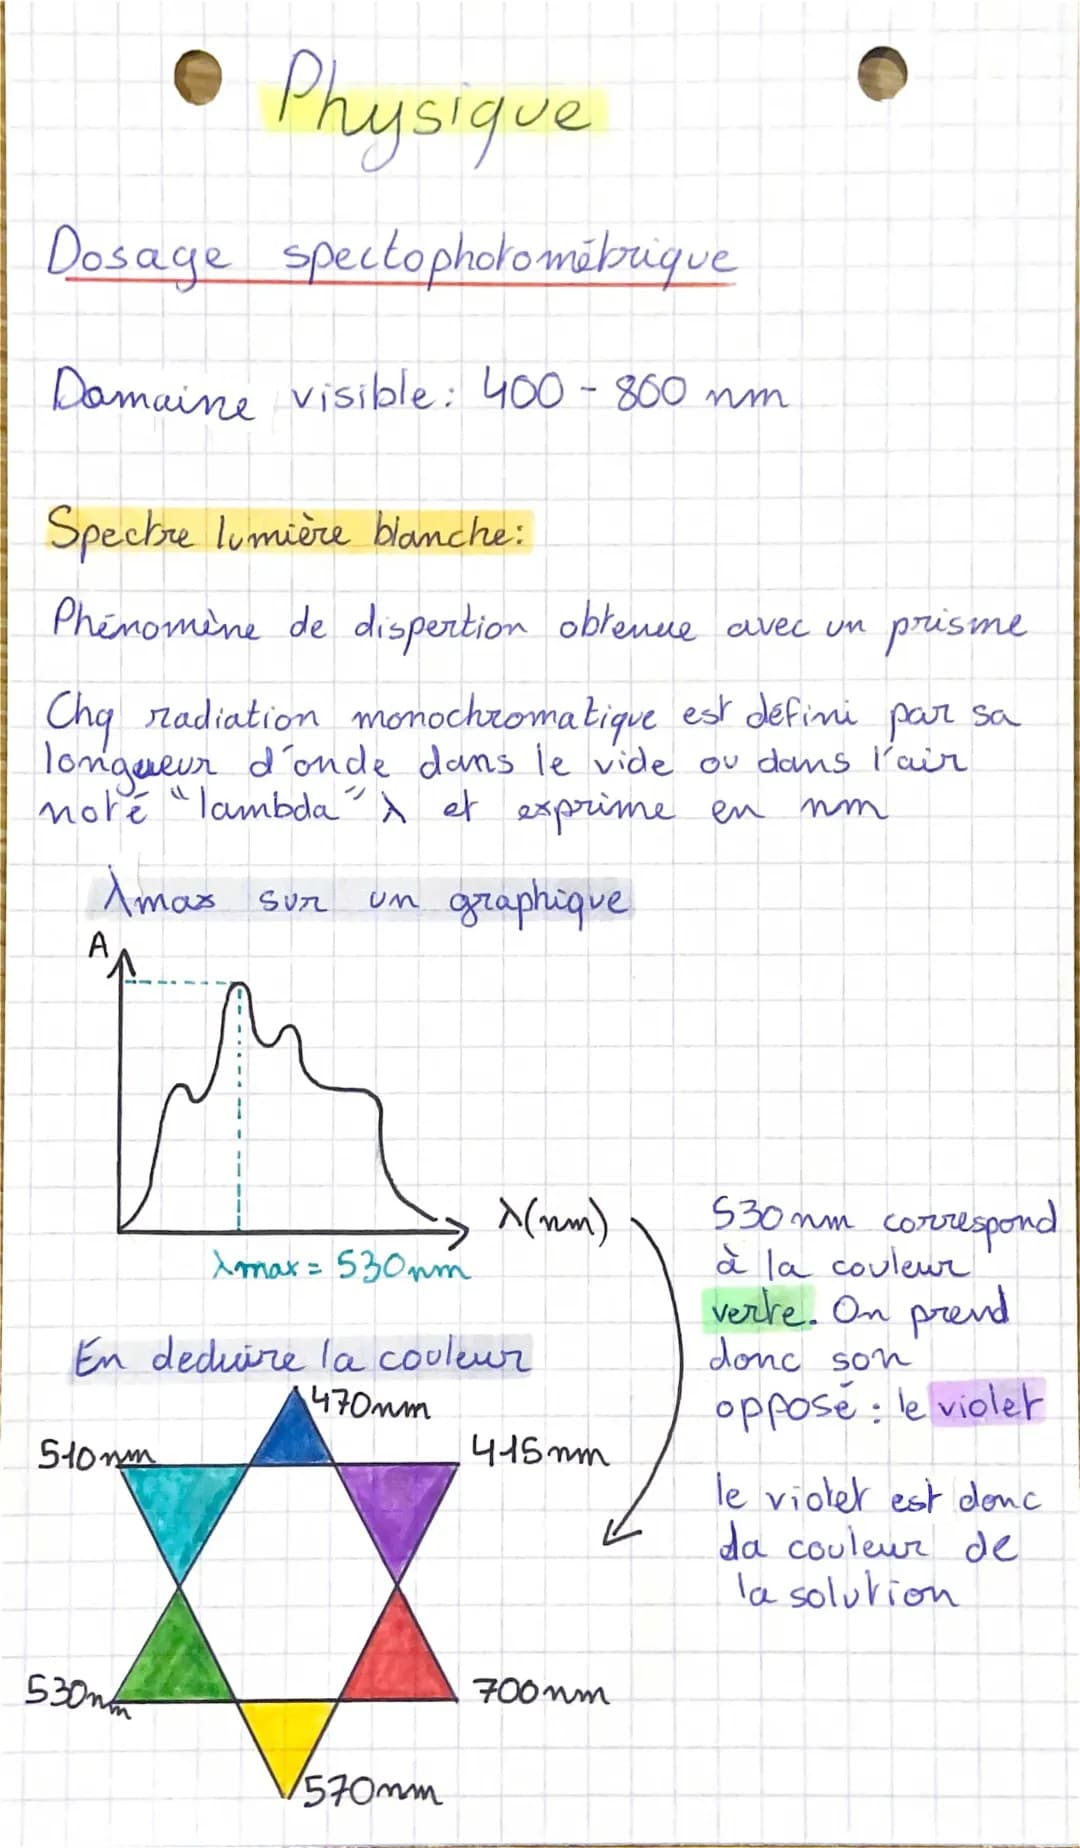 Physique
Dosage spectophotométrique
Domaine visible : 400 - 800 nm
Spectre lumière blanche :
Phénomène de dispertion obtenue avec un prisme
Chq radiation monochromatique est défini par sa
longueur d'onde dans le vide ou dans l'air
noté "lambda" λ et exprime en nm
λmax sur un graphique
A
λ(nm)
λmax = 530nm
530nm correspond
à la couleur
verte. On prend
donc son
opposé : le violet
le violet est donc
la couleur de
la solution
En deduire la couleur
470nm
510nm
415nm
530nm
700nm
570nm